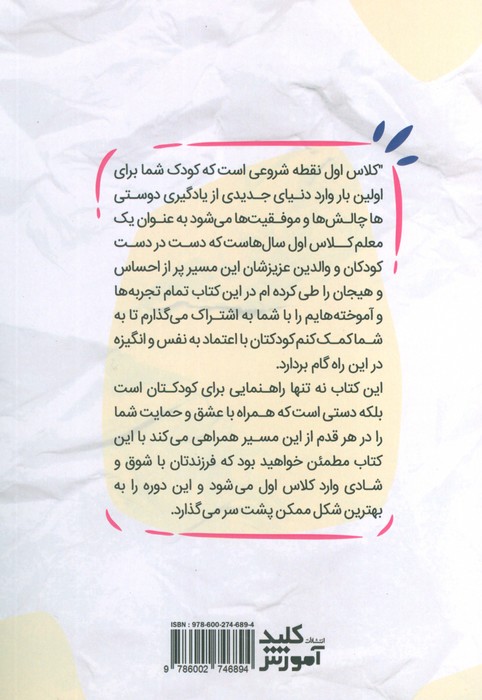 "کلاس اول نقطه شروعی است که کودک شما برای
اولین بار وارد دنیای جدیدی از یادگیری دوستی
ها چالش‌ها و موفقیت‌ها می‌شود به عنوان یک
معلم کلاس اول سال‌هاست که دست در دست
کودکان و والدین عزیزشان این مسیر پر از احساس
و هیجان را طی کرده ام در این کتاب تمام تجربه‌ها
و آموخته‌هایم را با شما به اشتراک می‌گذارم تا به
شما کمک کنم کودکتان با اعتماد به نفس و انگیزه
در این راه گام بردارد.
این کتاب نه تنها راهنمایی برای کودکتان است
بلکه دستی است که همراه با عشق و حمایت شما
را در هر قدم از این مسیر همراهی می‌کند با این
کتاب مطمئن خواهید بود که فرزندتان با شوق و
شادی وارد کلاس اول می‌شود و این دوره را به
بهترین شکل ممکن پشت سر می‌گذارد.
ISBN : 978-600-274-689-4
9 786002 746894
انتشارات
کلید
آموزش